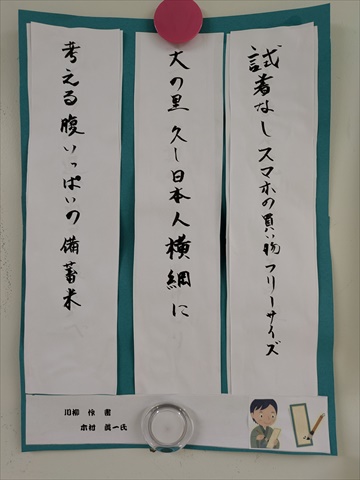 試着なしスマホの買い物フリーサイズ
大の里久し日本人横綱に
考える腹いっぱいの備蓄米
川柳 作者
木村 眞一氏